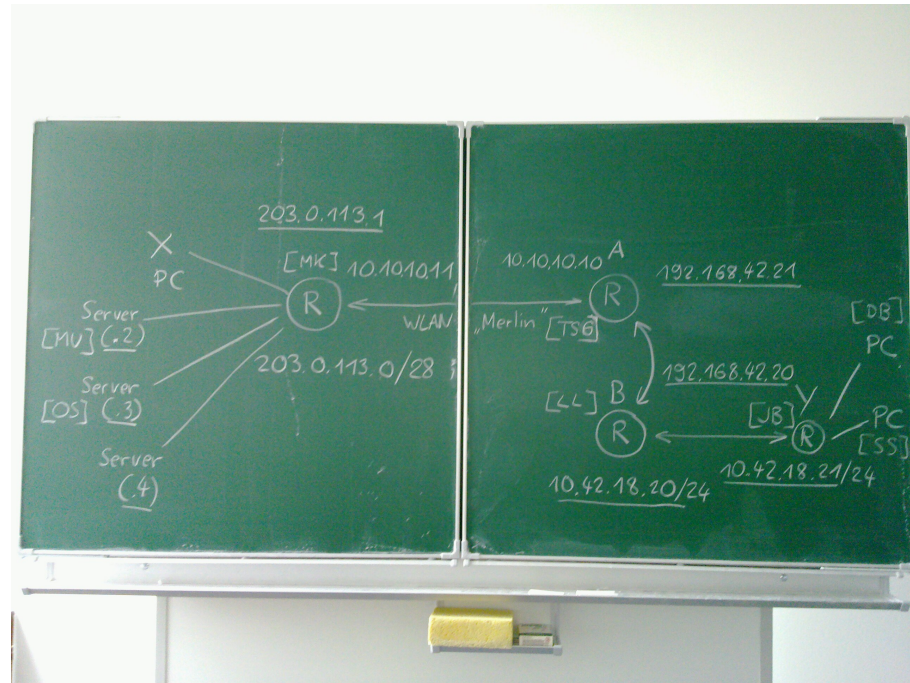 203.0.113.1
X
PC
[MK]
R
10.10.10.11
Server
[MV] (.2)
203.0.113.0/28
Server
[OS] (.3)
Server
(.4)
WLAN „Merlin"
10.10.10.10
A
R
[TSG]
192.168.42.21
[DB]
PC
192.168.42.20
[LL]
B
R
[JB]
Y
R
PC
[SS]
10.42.18.20/24
10.42.18.21/24